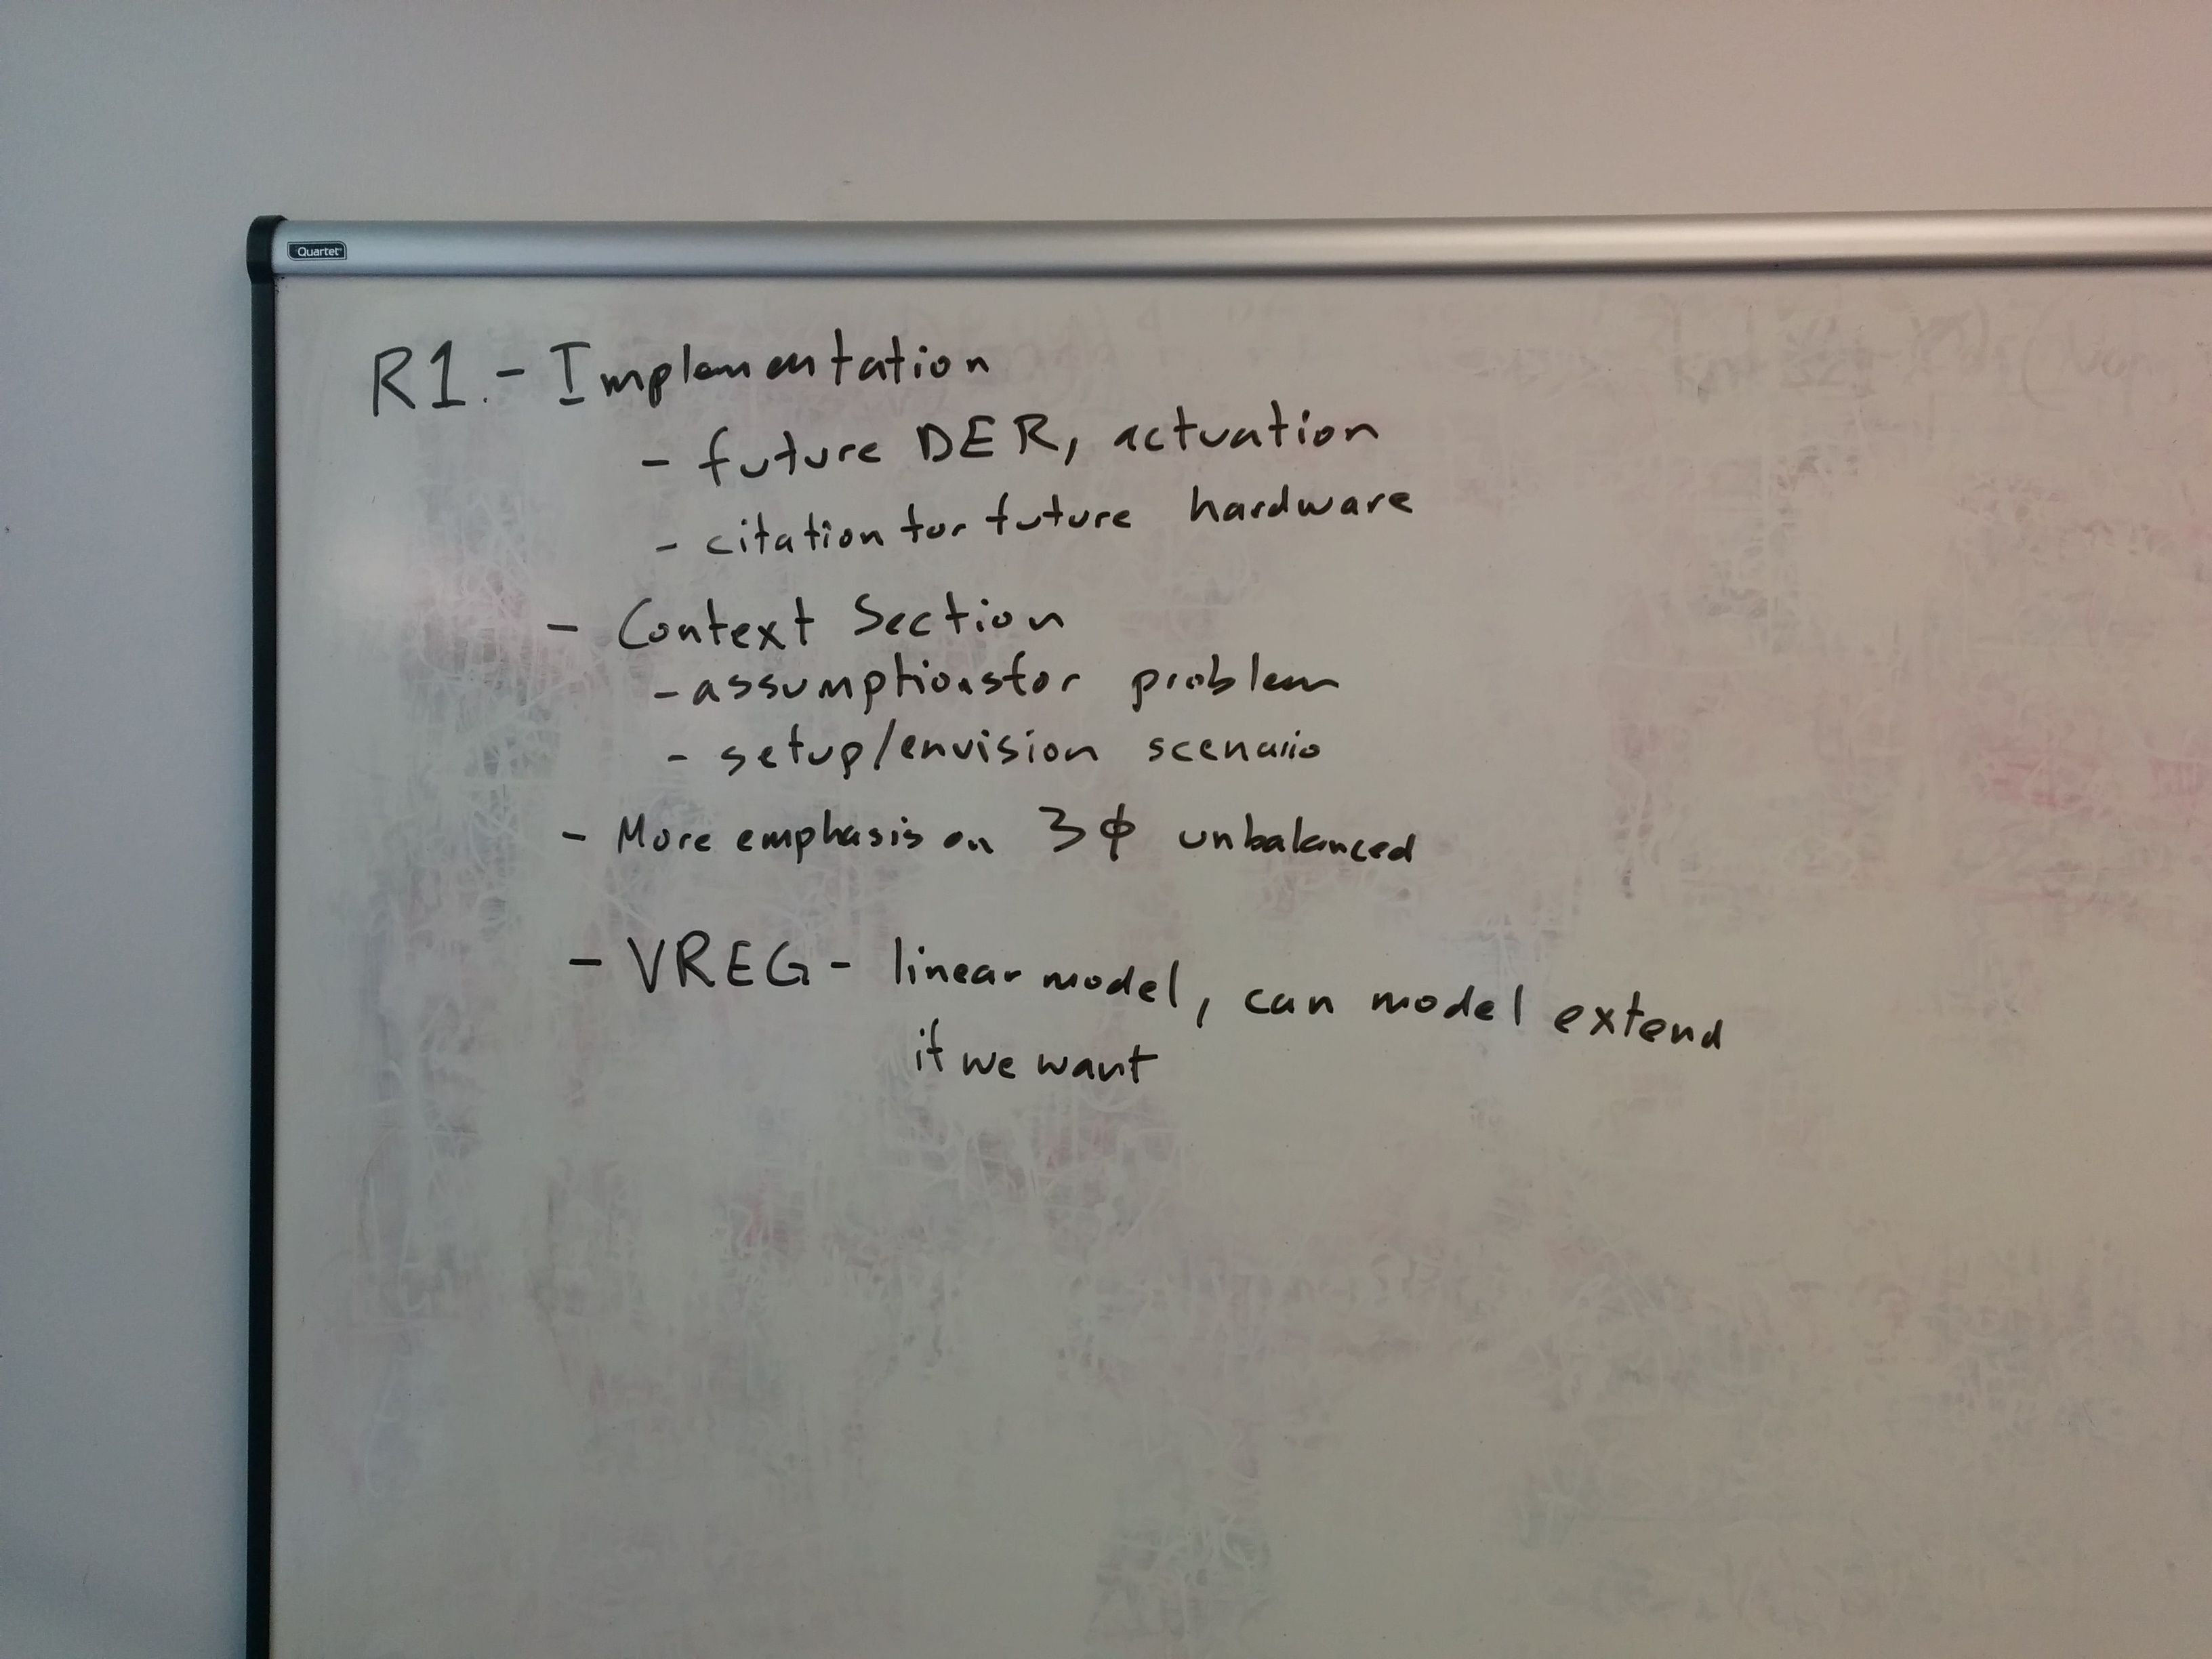 Quartet
R1. - Implementation
- future DER, actuation
- citation for future hardware
- Context Section
- assumptions for problem
- setup/envision scenario
- More emphasis on 3ϕ unbalanced
- VREG - linear model, can model extend
if we want